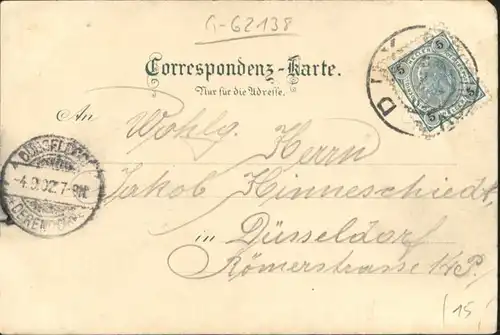 G-62138
Correspondenz-Karte.
Nur für die Adresse.
An
Wohlg. Herrn
Jakob Hinneschiedt,
in Düsseldorf
Römerstrasse
DÜSSELDORF
-4.9.02 7-8N
DEREN
5 5
5 5
(15)